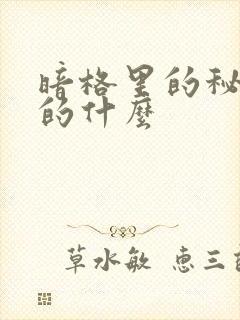 暗格里的秘
的什麼
草水敏 惠三